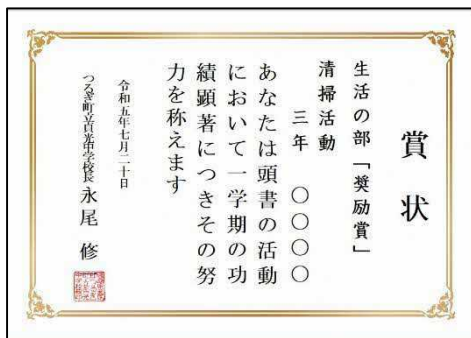 賞状
生活の部「奨励賞」
清掃活動
三年 〇〇〇〇
あなたは頭書の活動
において一学期の功
績顕著につきその努
力を称えます
令和五年七月二十日
つるぎ町立貞光中学校長 永尾 修